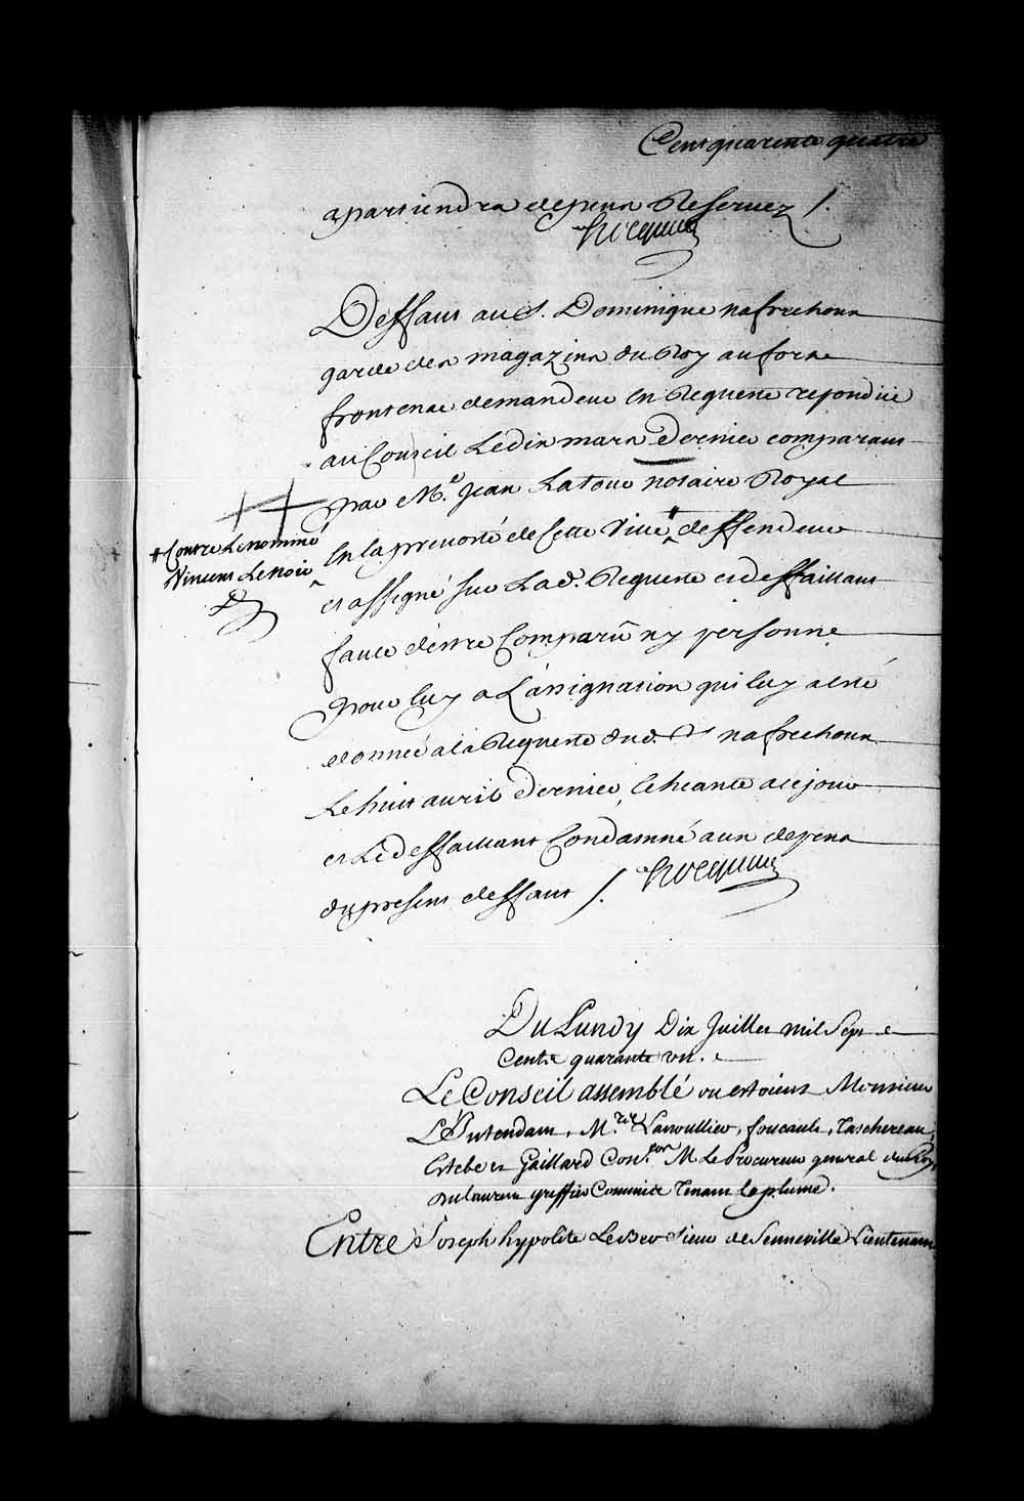 Cent quarente quatre
apartiendra depens Reservez /.
Hocquart
Deffaut au S. Dominique nafrechoux
garde des magazins du Roy au fort
frontenac demandeur En Requeste repondüe
au Conseil Le dix mars Dernier comparant
par Me. Jean Latour notaire Royal
En la prevosté de Cette Ville # deffendeur
# Contre Le nommé
Vincent Lenoir
et assigné sur Lad. Requeste et deffaillant
faute d'estre Comparü ny personne
pour luy a L'assignation qui luy a esté
donnée a la Requeste dud. Sr nafrechoux
Le huit avril Dernier, Echeante a ce jour
et Le deffaillant Condamné aux depens
du present deffaut /.
Hocquart
Du Lundy Dix Juillet mil Sept
Cents quarante un.
Le Conseil assemblé ou estoient Monsieur
L'Intendant, M.rs Varroullier, foucault, Taschereau,
Estebe et Gaillard Con.ers M Le Procureur general du Roy
Dulaurent greffier Commis Tenant la plume.
Entre Joseph hypolite LeBer Sieur de Senneville Lieutenant